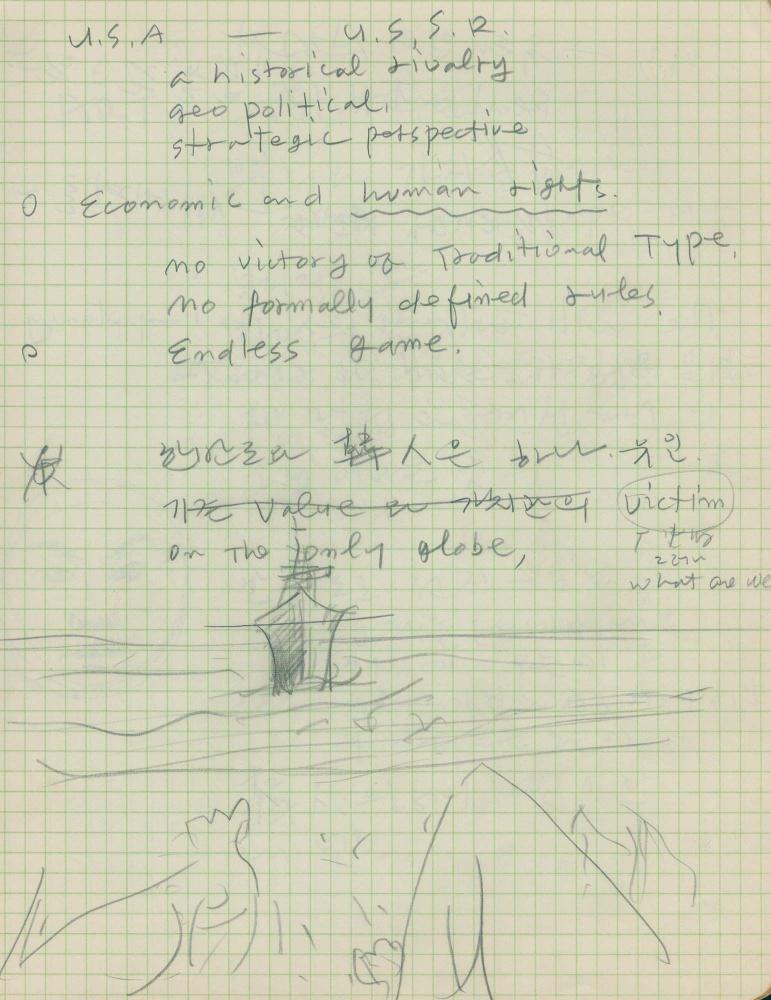 U.S.A — U.S.S.R.
a historical rivalry
geo political,
strategic perspective
O Economic and human rights.
no victory of Traditional Type,
no formally defined rules,
Endless game.
韓人은 하나.
Value victim
on The only globe,
what are we